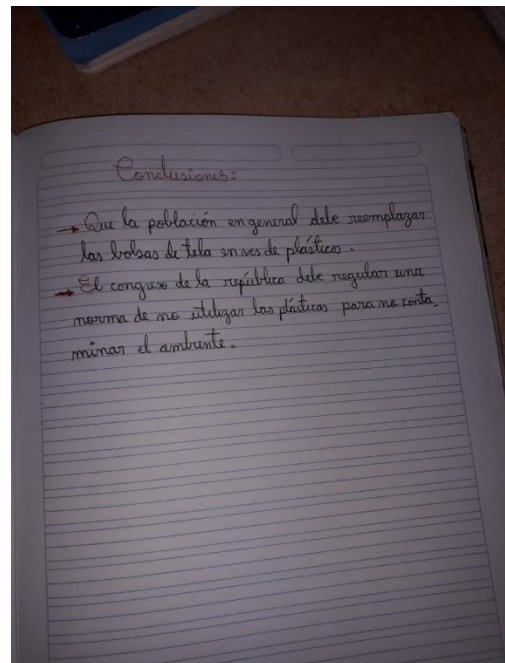 Conclusiones:
→ Que la población en general debe reemplazar
las bolsas de tela en ves de plástico.
→ El congreso de la república debe regular una
norma de no utilizar los plásticos para no conta_
minar el ambiente.